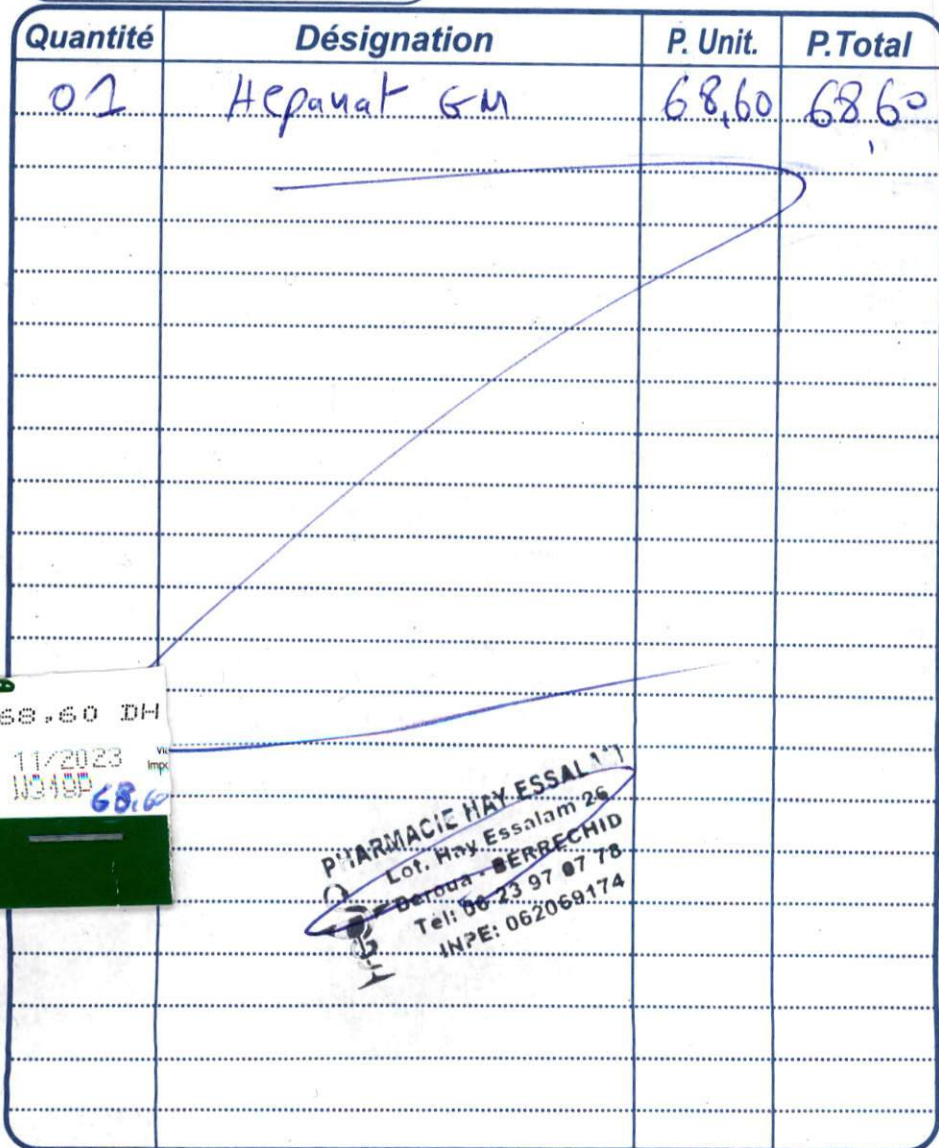 Quantité Désignation P. Unit. P.Total
01 Hepanat GM 68,60 68,60
68.60 DH
11/2023
68,60
PHARMACIE HAY ESSALAM
Lot. Hay Essalam 26
Deroua - BERRECHID
Tél: 06 23 97 07 78
INPE: 062069174